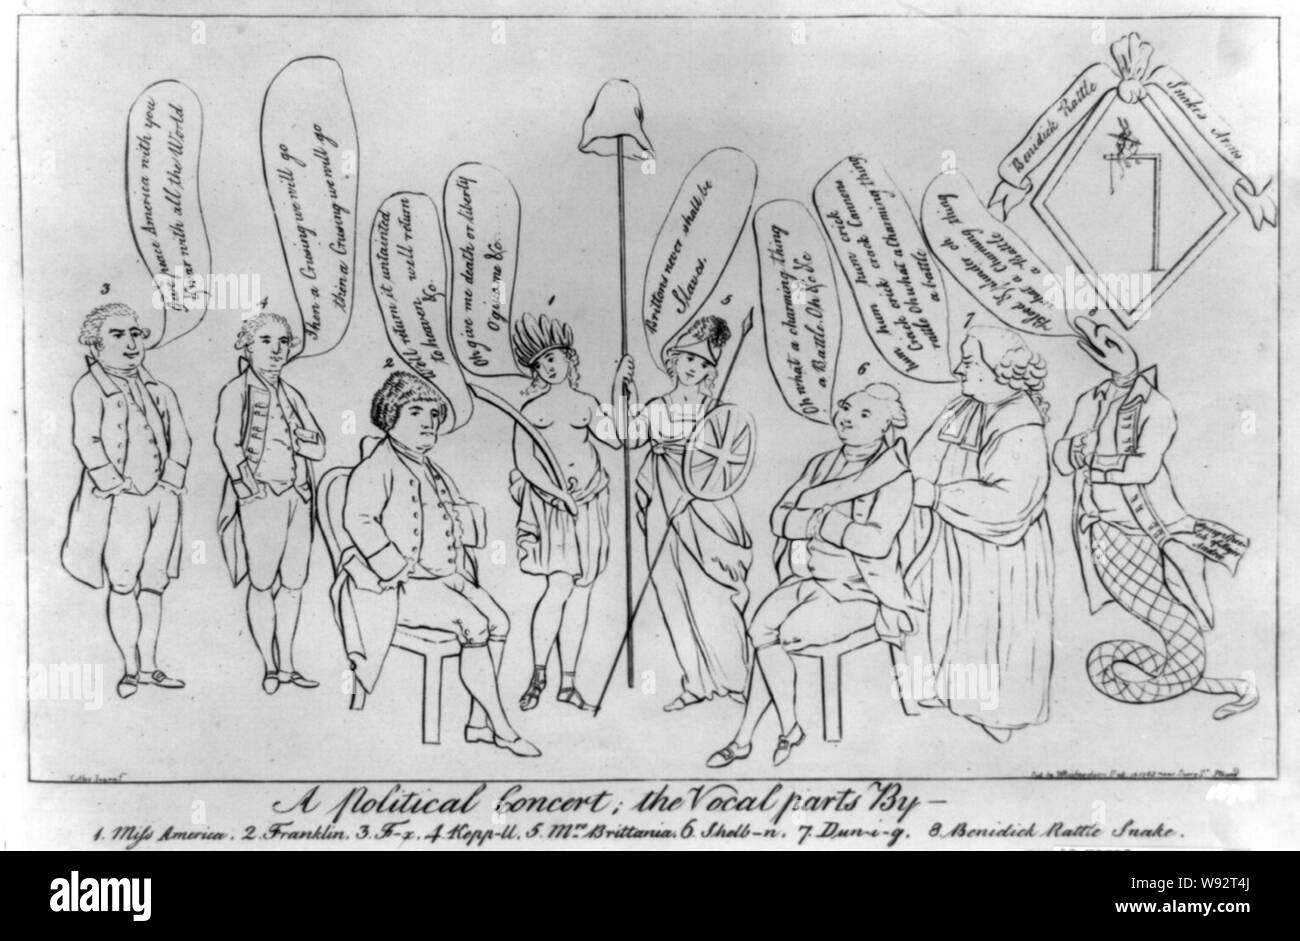 3
Give peace America with you
& war with all the World
4
Then a Cruising we will go
then a Crusing we will go
2
I'll return it untainted
to heaven, well return
&c.
Oh give me death or liberty
O give me &c.
1
Brittons never shall be
Slaves.
5
Oh what a charming thing
a Battle. Oh &c &c
6
hum crick
hum crick crock Cannons
Crick Oh what a charming thing
rattle
a battle
7
Blood & plunder oh
what a Charming thing
a Battle
8
Benidick Rattle
Snakes Arms
A Political Concert; the Vocal parts By —
1. Miss America. 2. Franklin. 3. F-x. 4. Kepp-ll. 5. Mrs Brittania. 6. Shelb-n. 7. Dun-i-g. 8. Benidick Rattle Snake.
a alamy stock photo
W92T4J
www.alamy.com